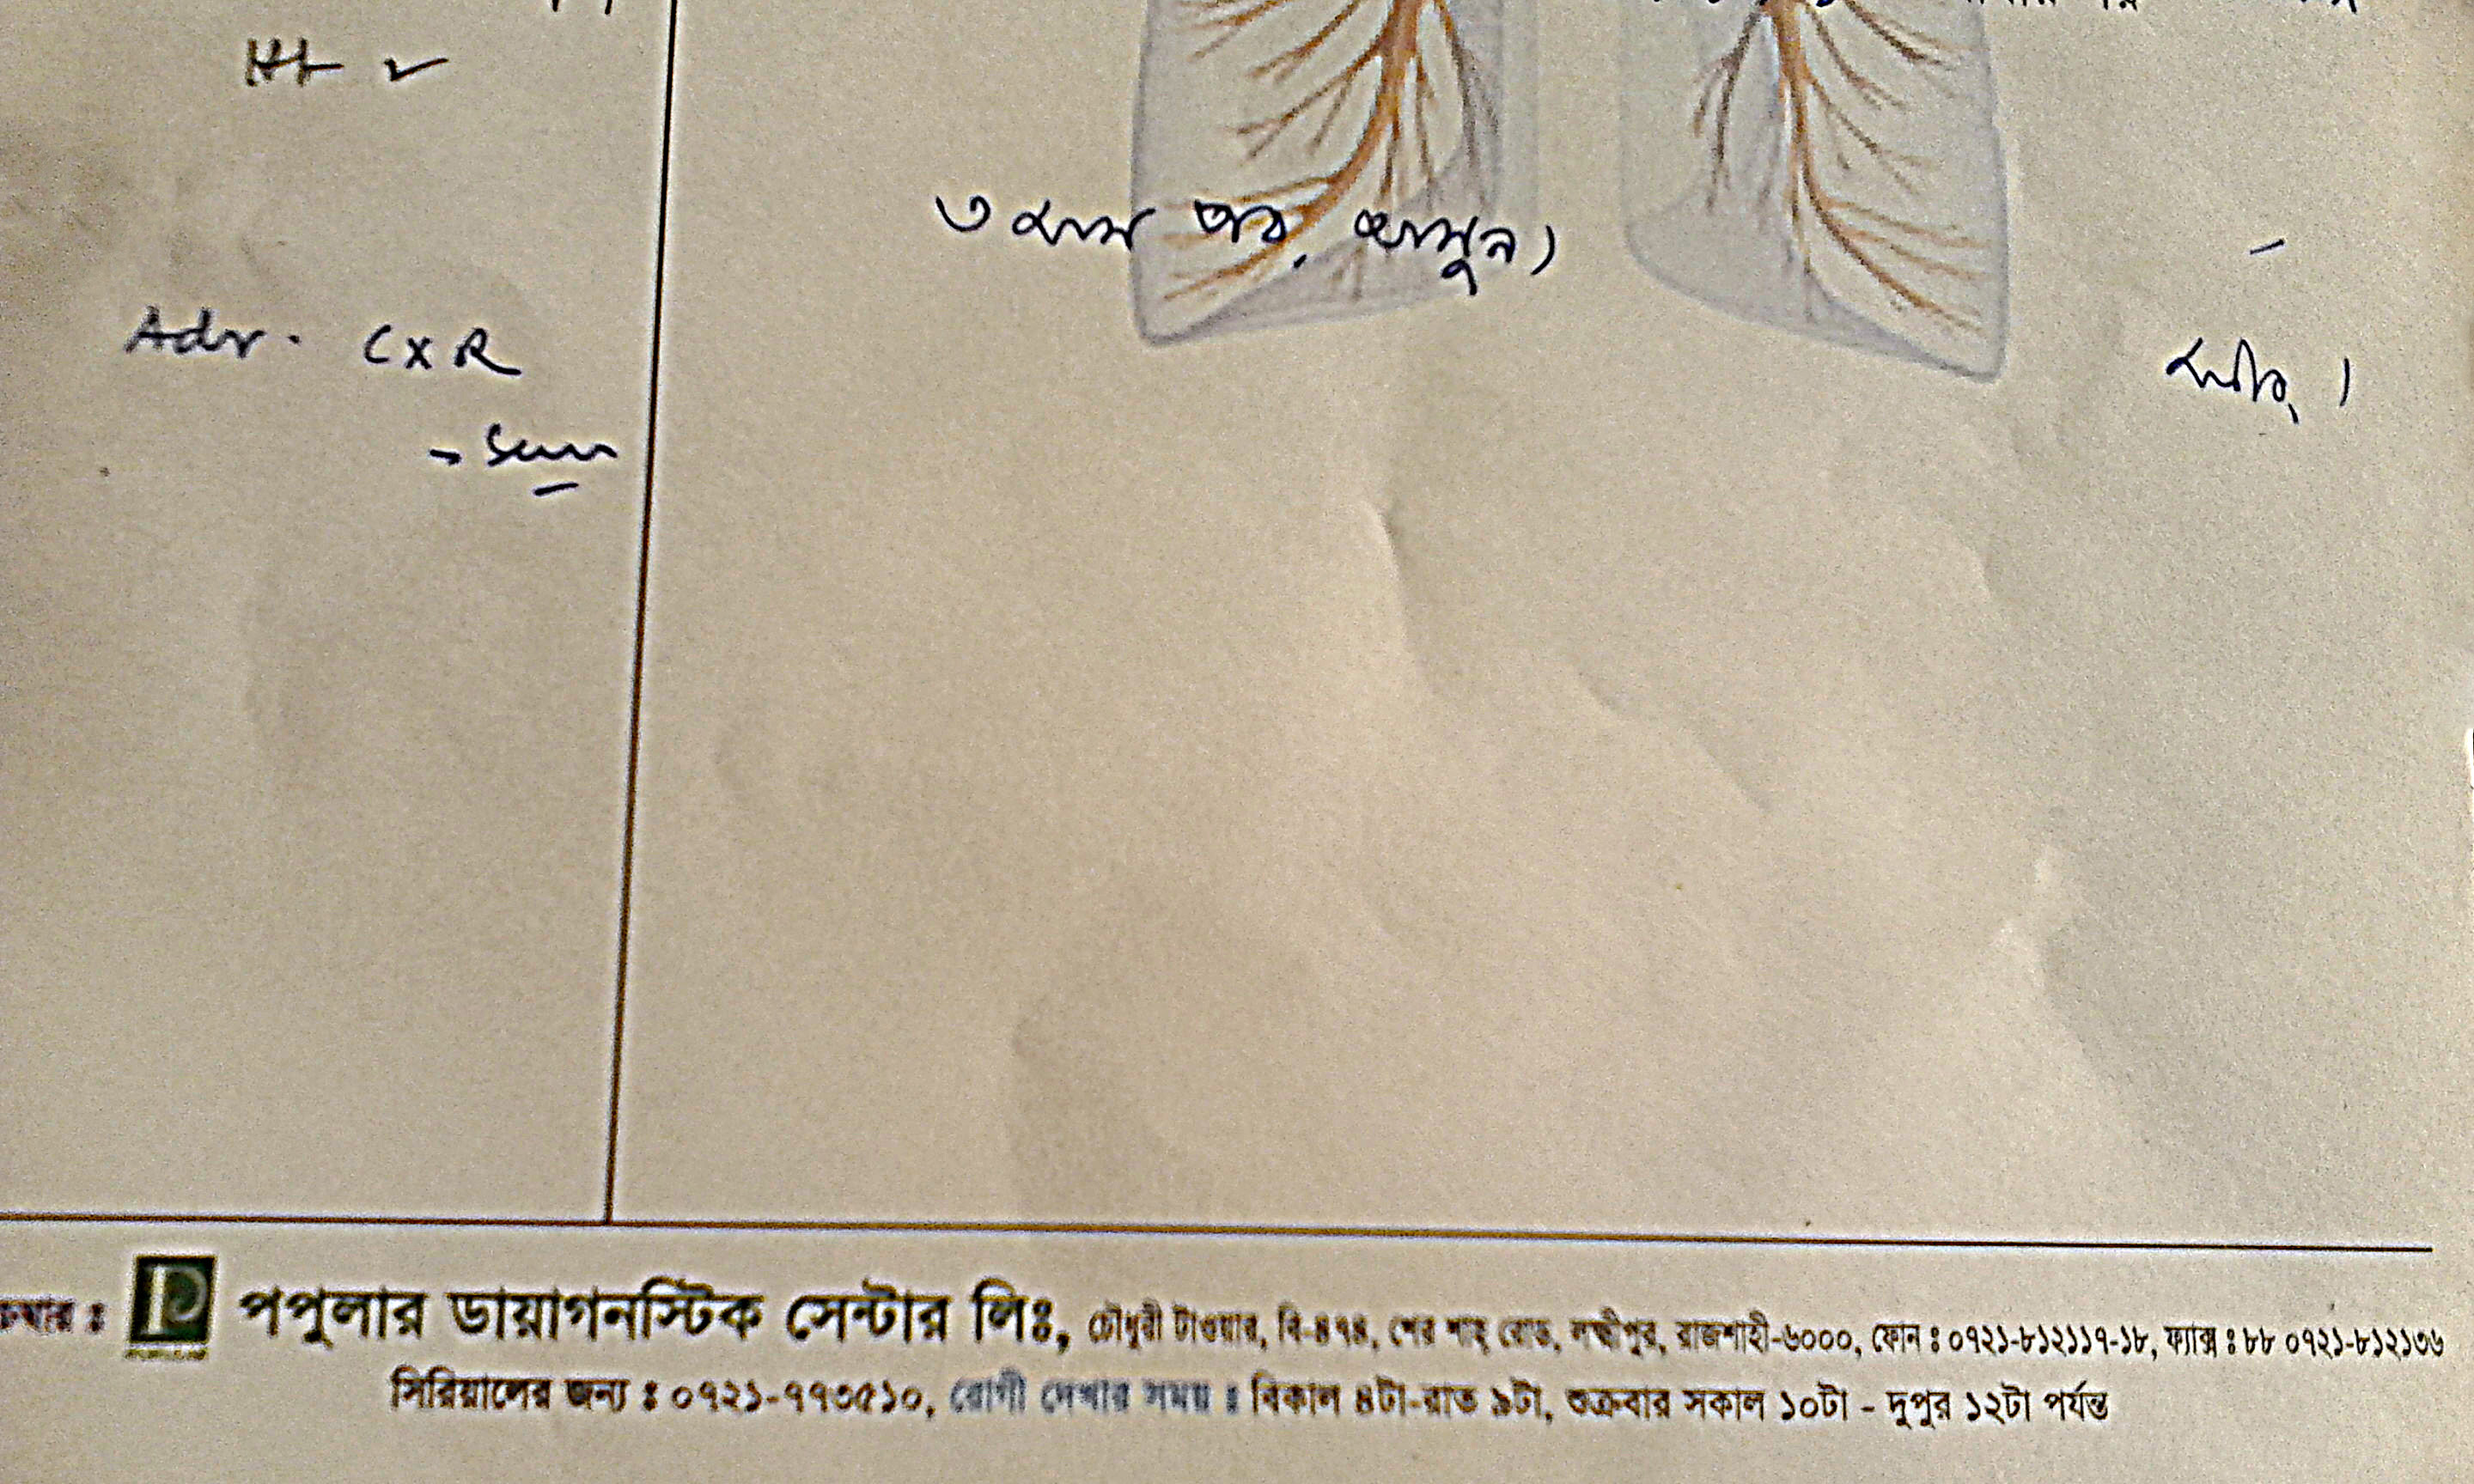 Ht ✓
৩ মাস পর, আসুন।
Adv. CXR
চেম্বার ঃ পপুলার ডায়াগনস্টিক সেন্টার লিঃ, চৌধুরী টাওয়ার, বি-৪৭৪, শের শাহ্ রোড, লক্ষ্মীপুর, রাজশাহী-৬০০০, ফোন ঃ ০৭২১-৮১২১১৭-১৮, ফ্যাক্স ঃ ৮৮ ০৭২১-৮১২১৩৬
সিরিয়ালের জন্য ঃ ০৭২১-৭৭৩৫১০, রোগী দেখার সময় ঃ বিকাল ৪টা-রাত ৯টা, শুক্রবার সকাল ১০টা - দুপুর ১২টা পর্যন্ত